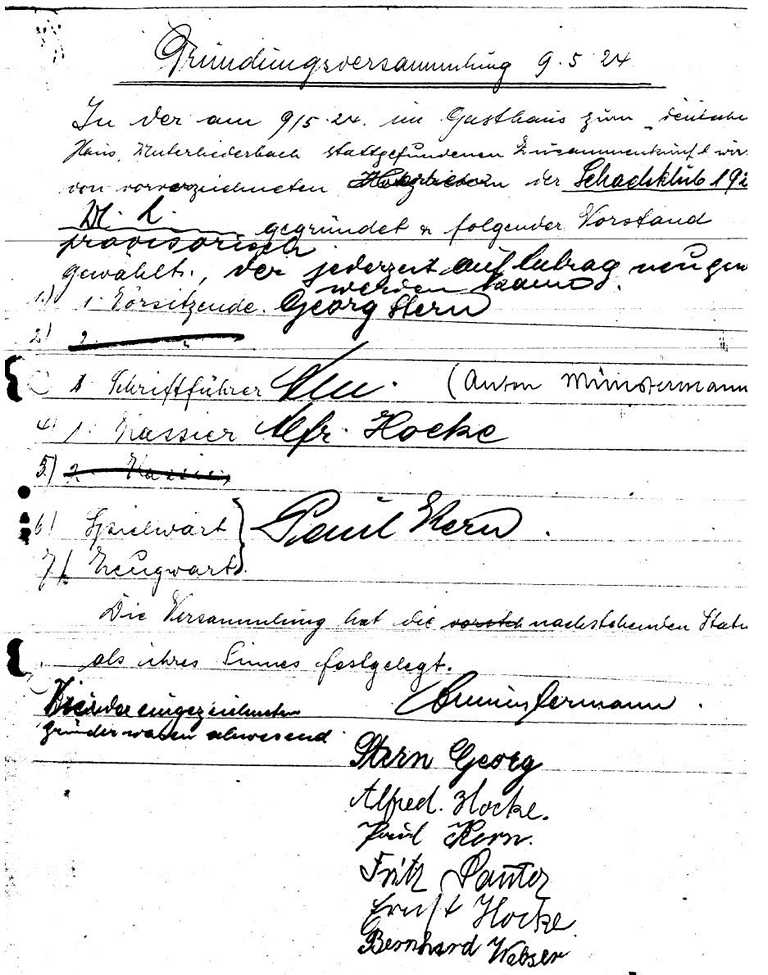 Gründungsversammlung 9.5.24
In der am 9/5.24. im Gasthaus zum „deutsche
Haus, Unterliederbach stattgefundenen Zusammenkunft wir
von vorverzeichneten der Schachklub 192
gegründet u folgender Vorstand
provisorisch
gewählt., der jederzeit auf Antrag neu gew
werden kann.
1.) 1. Vorsitzende. Georg Stern
2.) 2.
1 Schriftführer (Anton Münstermann
4.) 1. Kassier Alfr. Hocke
5.) 2. Kassier
6) Spielwart } Paul Kern.
7) Zeugwart
Die Versammlung hat die vorsteh nachstehenden Statu
als ihres Sinnes festgelegt.
eingezeichneten
Gründer waren abwesend
AMünstermann.
Stern Georg
Alfred. Hocke.
Paul Kern.
Fritz Panter
Ernst Hocke
Bernhard Weber